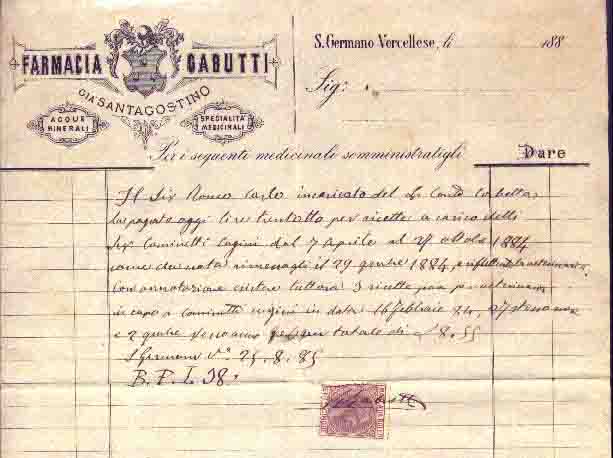 FARMACIA GABUTTI
GIÀ SANTAGOSTINO
ACQUE MINERALI
SPECIALITÀ MEDICINALI
S. Germano Vercellese, li 188
Sig:
Per i seguenti medicinale somministratigli
Dare
Il Sig Ronco Carlo incaricato del Sr Conte Corbetta
ha pagato oggi lire trentotto per ricette a carico delli
Sigr Cominetti Cugini dal 7 Aprile al 27 ottobre 1884
come da nota rimessagli il 29 9mbre 1884,
Con annotazione esistere tuttora 3 ricette
in capo a Cominetti cugini in data 16 febbraio 84,
e 2 totale di L 8.55
S Germano 25.8.85
B. P. L. 38.